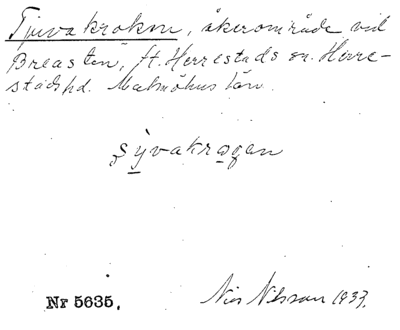 Tjuvakroken, åkerområde vid
Breastën, St. Herrestads sn. Herre-
stads hd. Malmöhus län.
şỳvakrøgen
Nr 5635.
Nils Nilsson 1933.